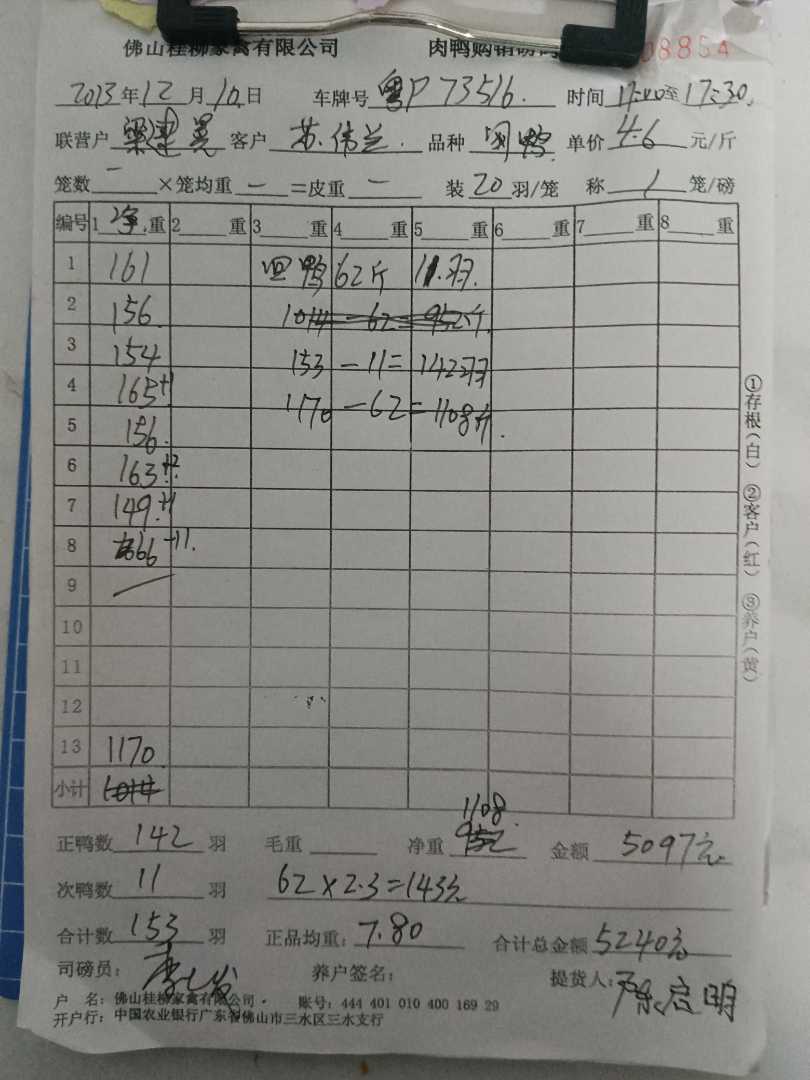 佛山桂柳家禽有限公司 肉鸭购销磅 08854
2013年12月10日 车牌号 粤P73516. 时间 17:00至17:30.
联营户 梁建 客户 苏伟兰. 品种 鸭 单价 4.6 元/斤
笼数 一 ×笼均重 一 =皮重 一 装 20 羽/笼 称 1 笼/磅
编号 1 净 重 2 重 3 重 4 重 5 重 6 重 7 重 8 重
1 161 回鸭 62斤 11.羽.
2 156. 1014-62=952斤.
3 154 153-11=142羽
4 165+1 1170-62=1108斤.
5 156.
6 163+2
7 149.+1
8 66-11.
9
10
11
12
13 1170
小计 1014
正鸭数 142 羽 毛重 净重 952 1108. 金额 5097元.
次鸭数 11 羽 62×2.3=143元
合计数 153 羽 正品均重: 7.80 合计总金额 5240元
司磅员: 养户签名: 提货人: 陈启明
户 名: 佛山桂柳家禽有限公司. 账号: 444 401 010 400 169 29
开户行: 中国农业银行广东省佛山市三水区三水支行
①存根(白) ②客户(红) ③养户(黄)